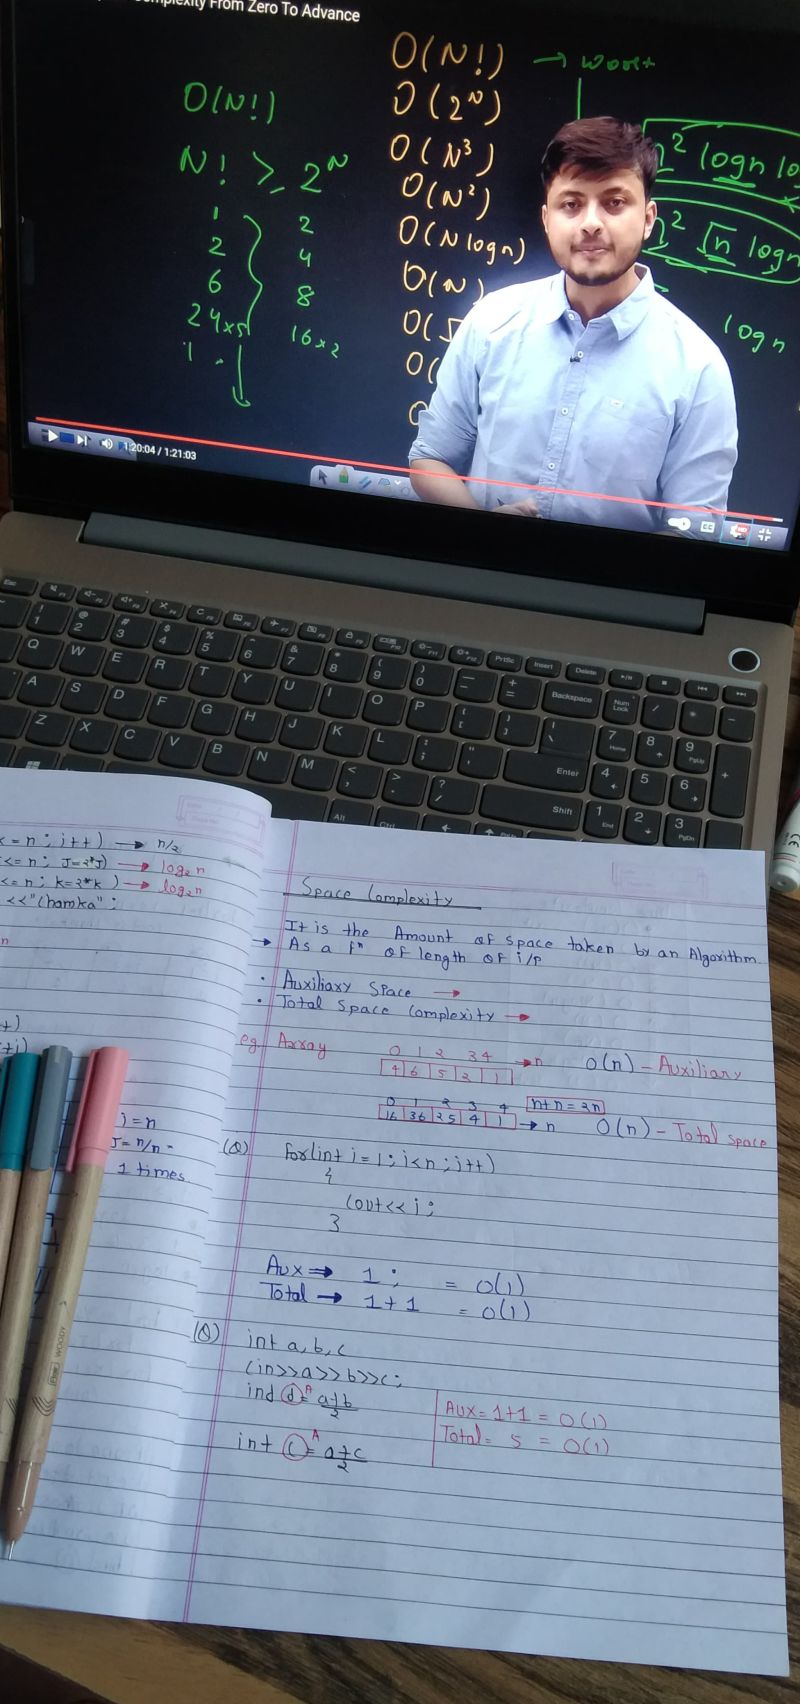 Complexity From Zero To Advance
O(N!)
N! >= 2^N
1 2
2 4
6 8
24x5 16x2
O(N!) → worst
O(2^N)
O(N³)
O(N²)
O(N logn)
O(N)
n² logn
n² √n logn
logn
1:20:04 / 1:21:03
CC
HD
Esc F1 F2 F3 F4 F5 F6 F7 F8 F9 F10 F11 F12 PrtSc Insert Delete
! 1 @ 2 # 3 $ 4 % 5 ^ 6 & 7 * 8 ( 9 ) 0 _ - + = Backspace Num Lock / * -
Q W E R T Y U I O P { [ } ] | \ 7 Home 8 9 PgUp +
A S D F G H J K L : ; " ' Enter 4 5 6
Z X C V B N M < , > . ? / Shift 1 End 2 3 PgDn
Alt Ctrl
<= n ; i++) → n/2
<= n; J=2*J) → log₂n
<= n; k=2*k) → log₂n
<<"Chamka";
n
i = n
J = n/n =
1 times
Space Complexity
It is the Amount of space taken by an Algorithm.
→ As a fⁿ of length of i/p
• Auxiliary Space →
• Total Space Complexity →
eg. Array
0 1 2 3 4 → n O(n) - Auxiliary
4 6 5 2 1
0 1 2 3 4 n+n = 2n
16 36 25 4 1 → n O(n) - Total space
(Q) for(int i=1; i<n; i++)
{
Cout<<i;
}
Aux ⇒ 1; = O(1)
Total → 1+1 = O(1)
(Q) int a, b, c
Cin>>a>>b>>c;
ind d = a+b/2
int c = a+c/2
Aux = 1+1 = O(1)
Total = 5 = O(1)
WOODY